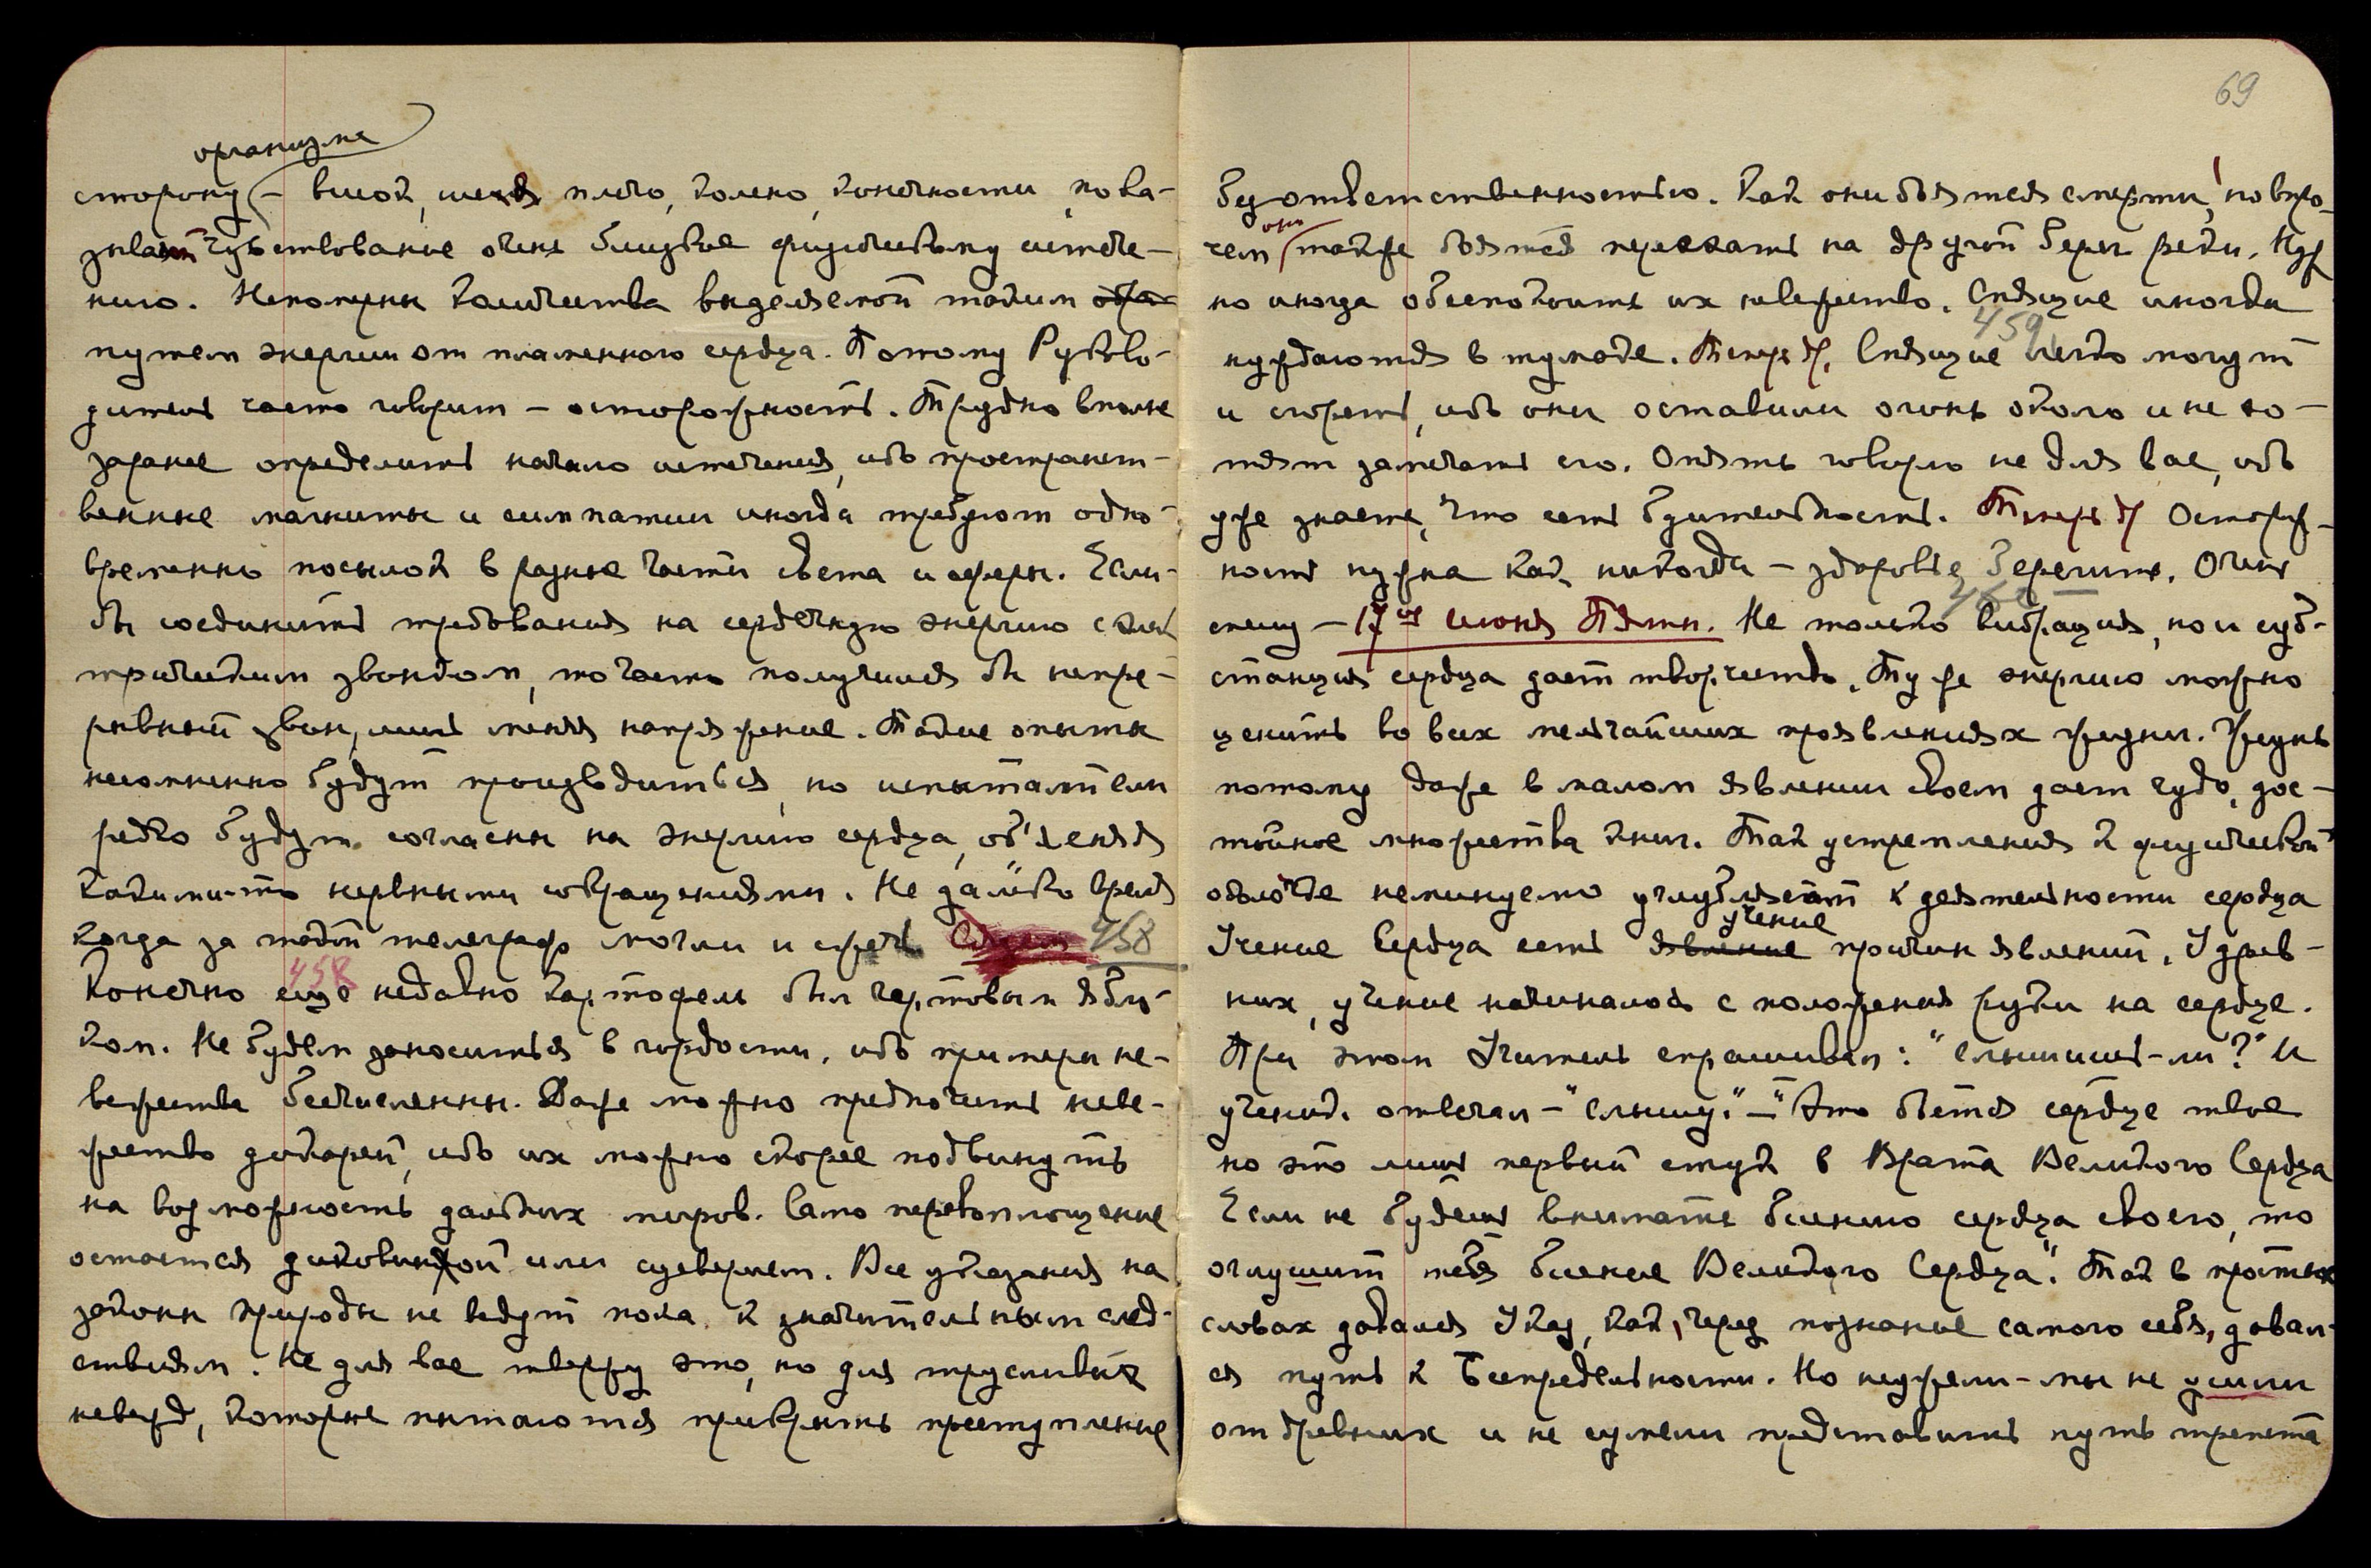 организма
сторону – висок, шея, плечо, колено, конечности, пока-
зывают чувствование очень близкое физическому истече-
нию. Неполерны количества выделяемой таким обра
путем энергии от пламенного сердца. Потому Руково-
дитель часто говорит – осторожность. Трудно вполне
заранее определить начало истечения, ибо пространст-
венные магниты и симпатии иногда требуют одно-
временно посылок в разные части света и сферы. Если-
бы соединить требования на сердечную энергию с элек
трическим звонком, то часто получился бы непре-
рывный звон, лишь меняя напряжение. Такие опыты
несомненно будут производиться, но испытатели
редко будут согласны на энергию сердца, об'ясняя
какими-то нервными сокращениями. Не далёко время
когда за такой телеграф могли и сжечь 458
458
Конечно еще недавно картофель был чертовым ябло-
ком. Не будем заноситься в гордости, ибо примеры не-
вежества бесчисленны. Даже можно предпочесть неве-
жество дикарей, ибо их можно скорее подвинуть
на возможность дальних миров. Само перевоплощение
остается диковинкой или суеверием. Все указания на
законы природы не ведут пока к значительным след-
ствиям. Не для вас твержу это, но для трусливых
невежд, которые пытаются прикрыть преступление
69
безответственностью. Как они боятся смерти, но впро-
чем они также боятся переехать на другой берег реки. Нуж
но иногда обеспокоить их невежество. Спящие иногда
459
нуждаются в тумаке. Спящие легко могут
и сгореть, ибо они оставили огонь около и не хо-
тят замечать его. Опять говорю не для вас, ибо
уже знаете, что есть бдительность. Осторож-
ность нужна как никогда – здоровье берегите. Очень
спешу – 17ое июня Пятн. Не только вибрация, но и суб-
станция сердца дает творчество. Ту же энергию можно
ценить во всех мельчайших проявлениях жизни. Жизнь
потому даже в малом явлении своем дает чудо, дос-
тойное множества книг. Так устремления к физической
оболочке неминуемо углубляет к деятельности сердца
учение
Учение Сердца есть явление причин явлений. У древ-
них, учение начиналось с положения руки на сердце.
При этом Учитель спрашивал: "слышишь-ли?" И
ученик отвечал – "слышу." – "Это бьётся сердце твое
но это лишь первый стук в Врата Великого Сердца
Если не будешь внимать биению сердца своего, то
оглушит тебя биение Великого Сердца". Так в простых
словах давался Указ, как, через познание самого себя, давал-
ся путь к Беспредельности. Но неужели-мы не ушли
от древних и не сумели представить путь трепета